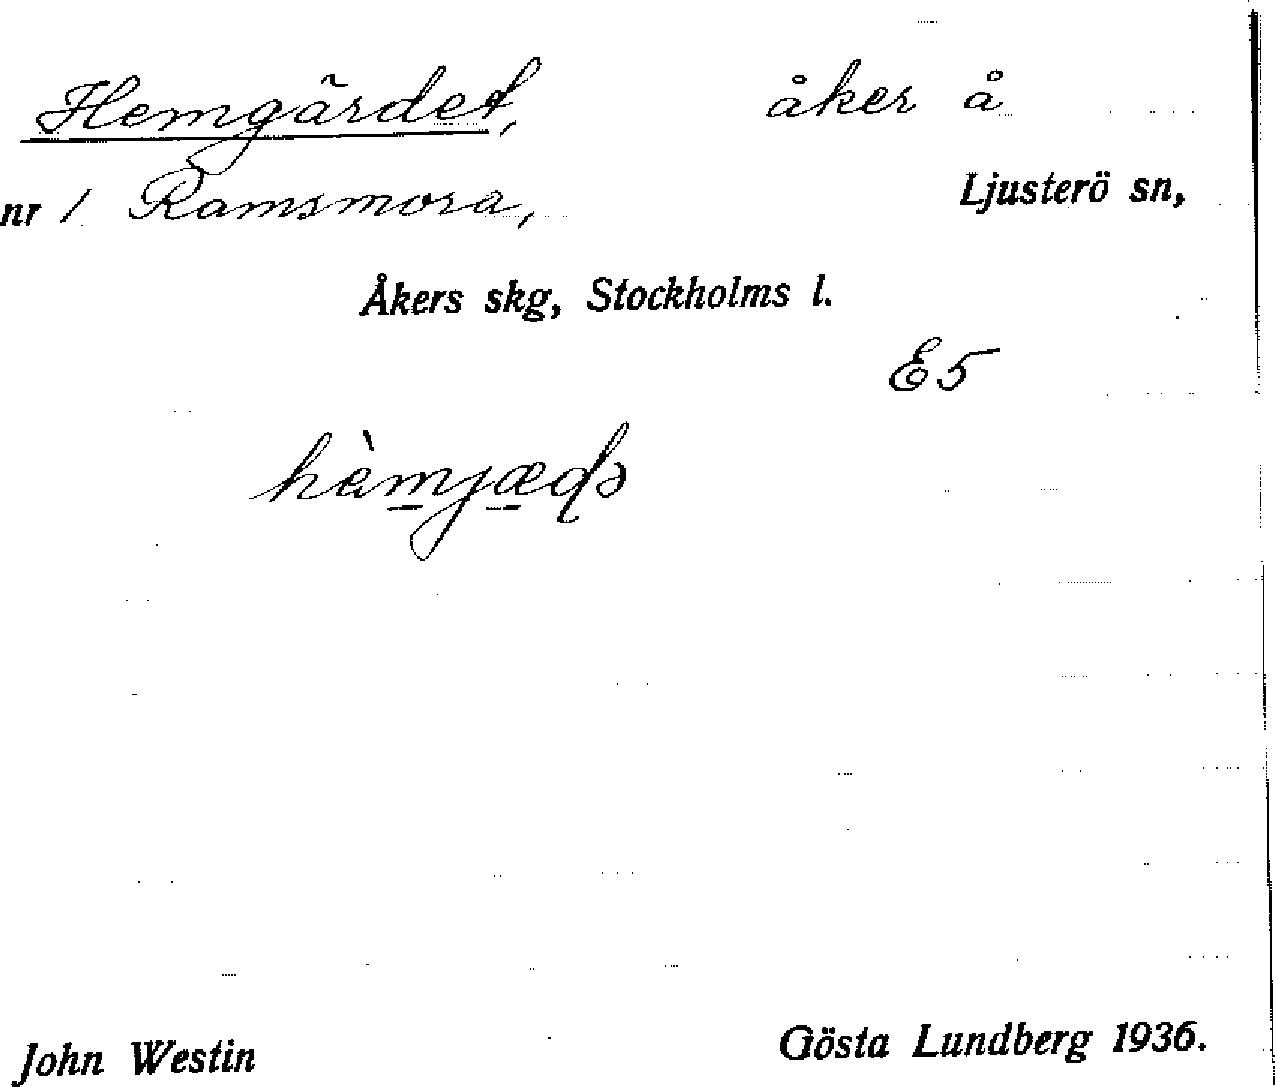 Hemgärdet, åker å
nr 1 Ramsmora, Ljusterö sn,
Åkers skg, Stockholms l.
E5
hèmjæɖə
John Westin Gösta Lundberg 1936.